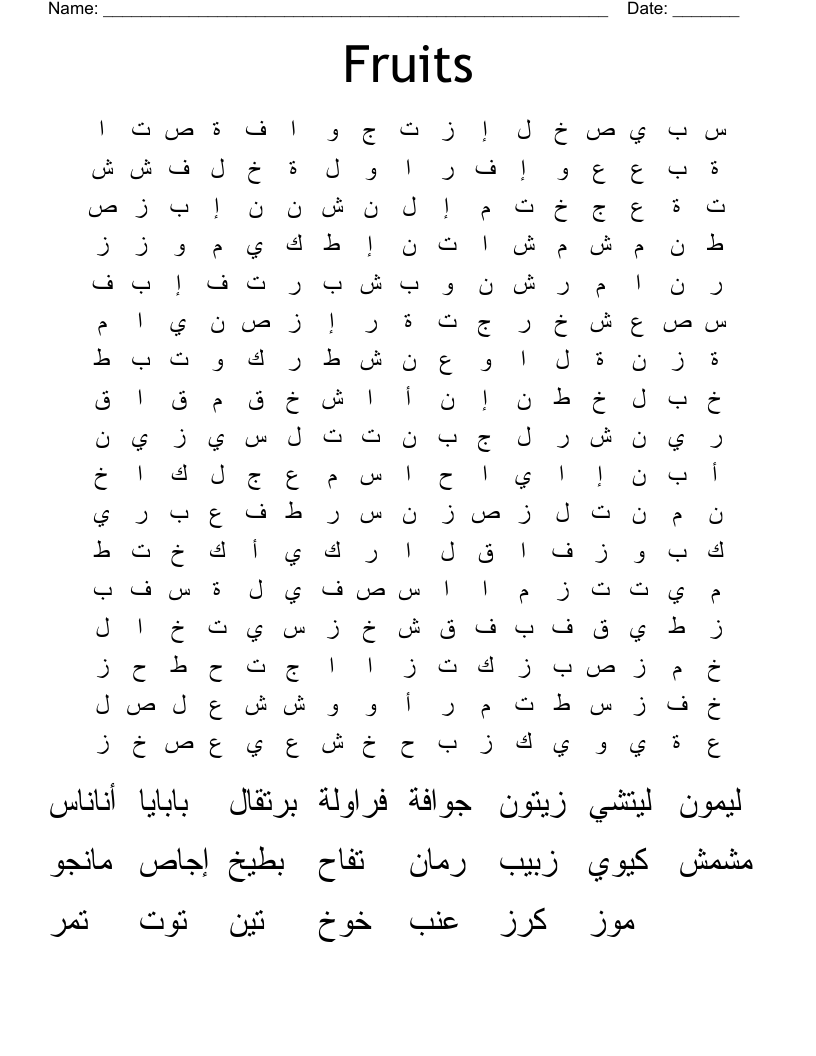 Name: ____________________ Date: _______
Fruits
س ب ي ص خ ل إ ز ت ج و ا ف ة ص ت ا
ة ب ع ع و إ ف ر ا و ل ة خ ل ف ش ش
ت ة ع ج خ ت م إ ل ن ش ن ن إ ب ز ص
ط ن م ش م ش ا ت ن إ ط ك ي م و ز ز
ر ن ا م ر ش ن و ب ش ب ر ت ف إ ب ف
س ص ع ش خ ر ج ت ة ر إ ز ص ن ي ا م
ة ز ن ة ل ا و ع ن ش ط ر ك و ت ب ط
خ ب ل خ ط ن إ ن أ ا ش خ ق م ق ا ق
ر ي ن ش ر ل ج ب ن ت ت ل س ي ز ي ن
أ ب ن إ ا ي ا ح ا س م ع ج ل ك ا خ
ن م ن ت ل ز ص ز ن س ر ط ف ع ب ر ي
ك ب و ز ف ا ق ل ا ر ك ي أ ك خ ت ط
م ي ت ت ز م ا ا س ص ف ي ل ة س ف ب
ز ط ي ق ف ب ف ق ش خ ز س ي ت خ ا ل
خ م ز ص ب ز ك ت ز ا ا ج ت ح ط ح ز
خ ف ز س ط ت م ر أ و و ش ش ع ل ص ل
ع ة ي و ي ك ز ب ح خ ش ع ي ع ص خ ز
ليمون ليتشي زيتون جوافة فراولة برتقال بابايا أناناس
مشمش كيوي زبيب رمان تفاح بطيخ إجاص مانجو
موز كرز عنب خوخ تين توت تمر